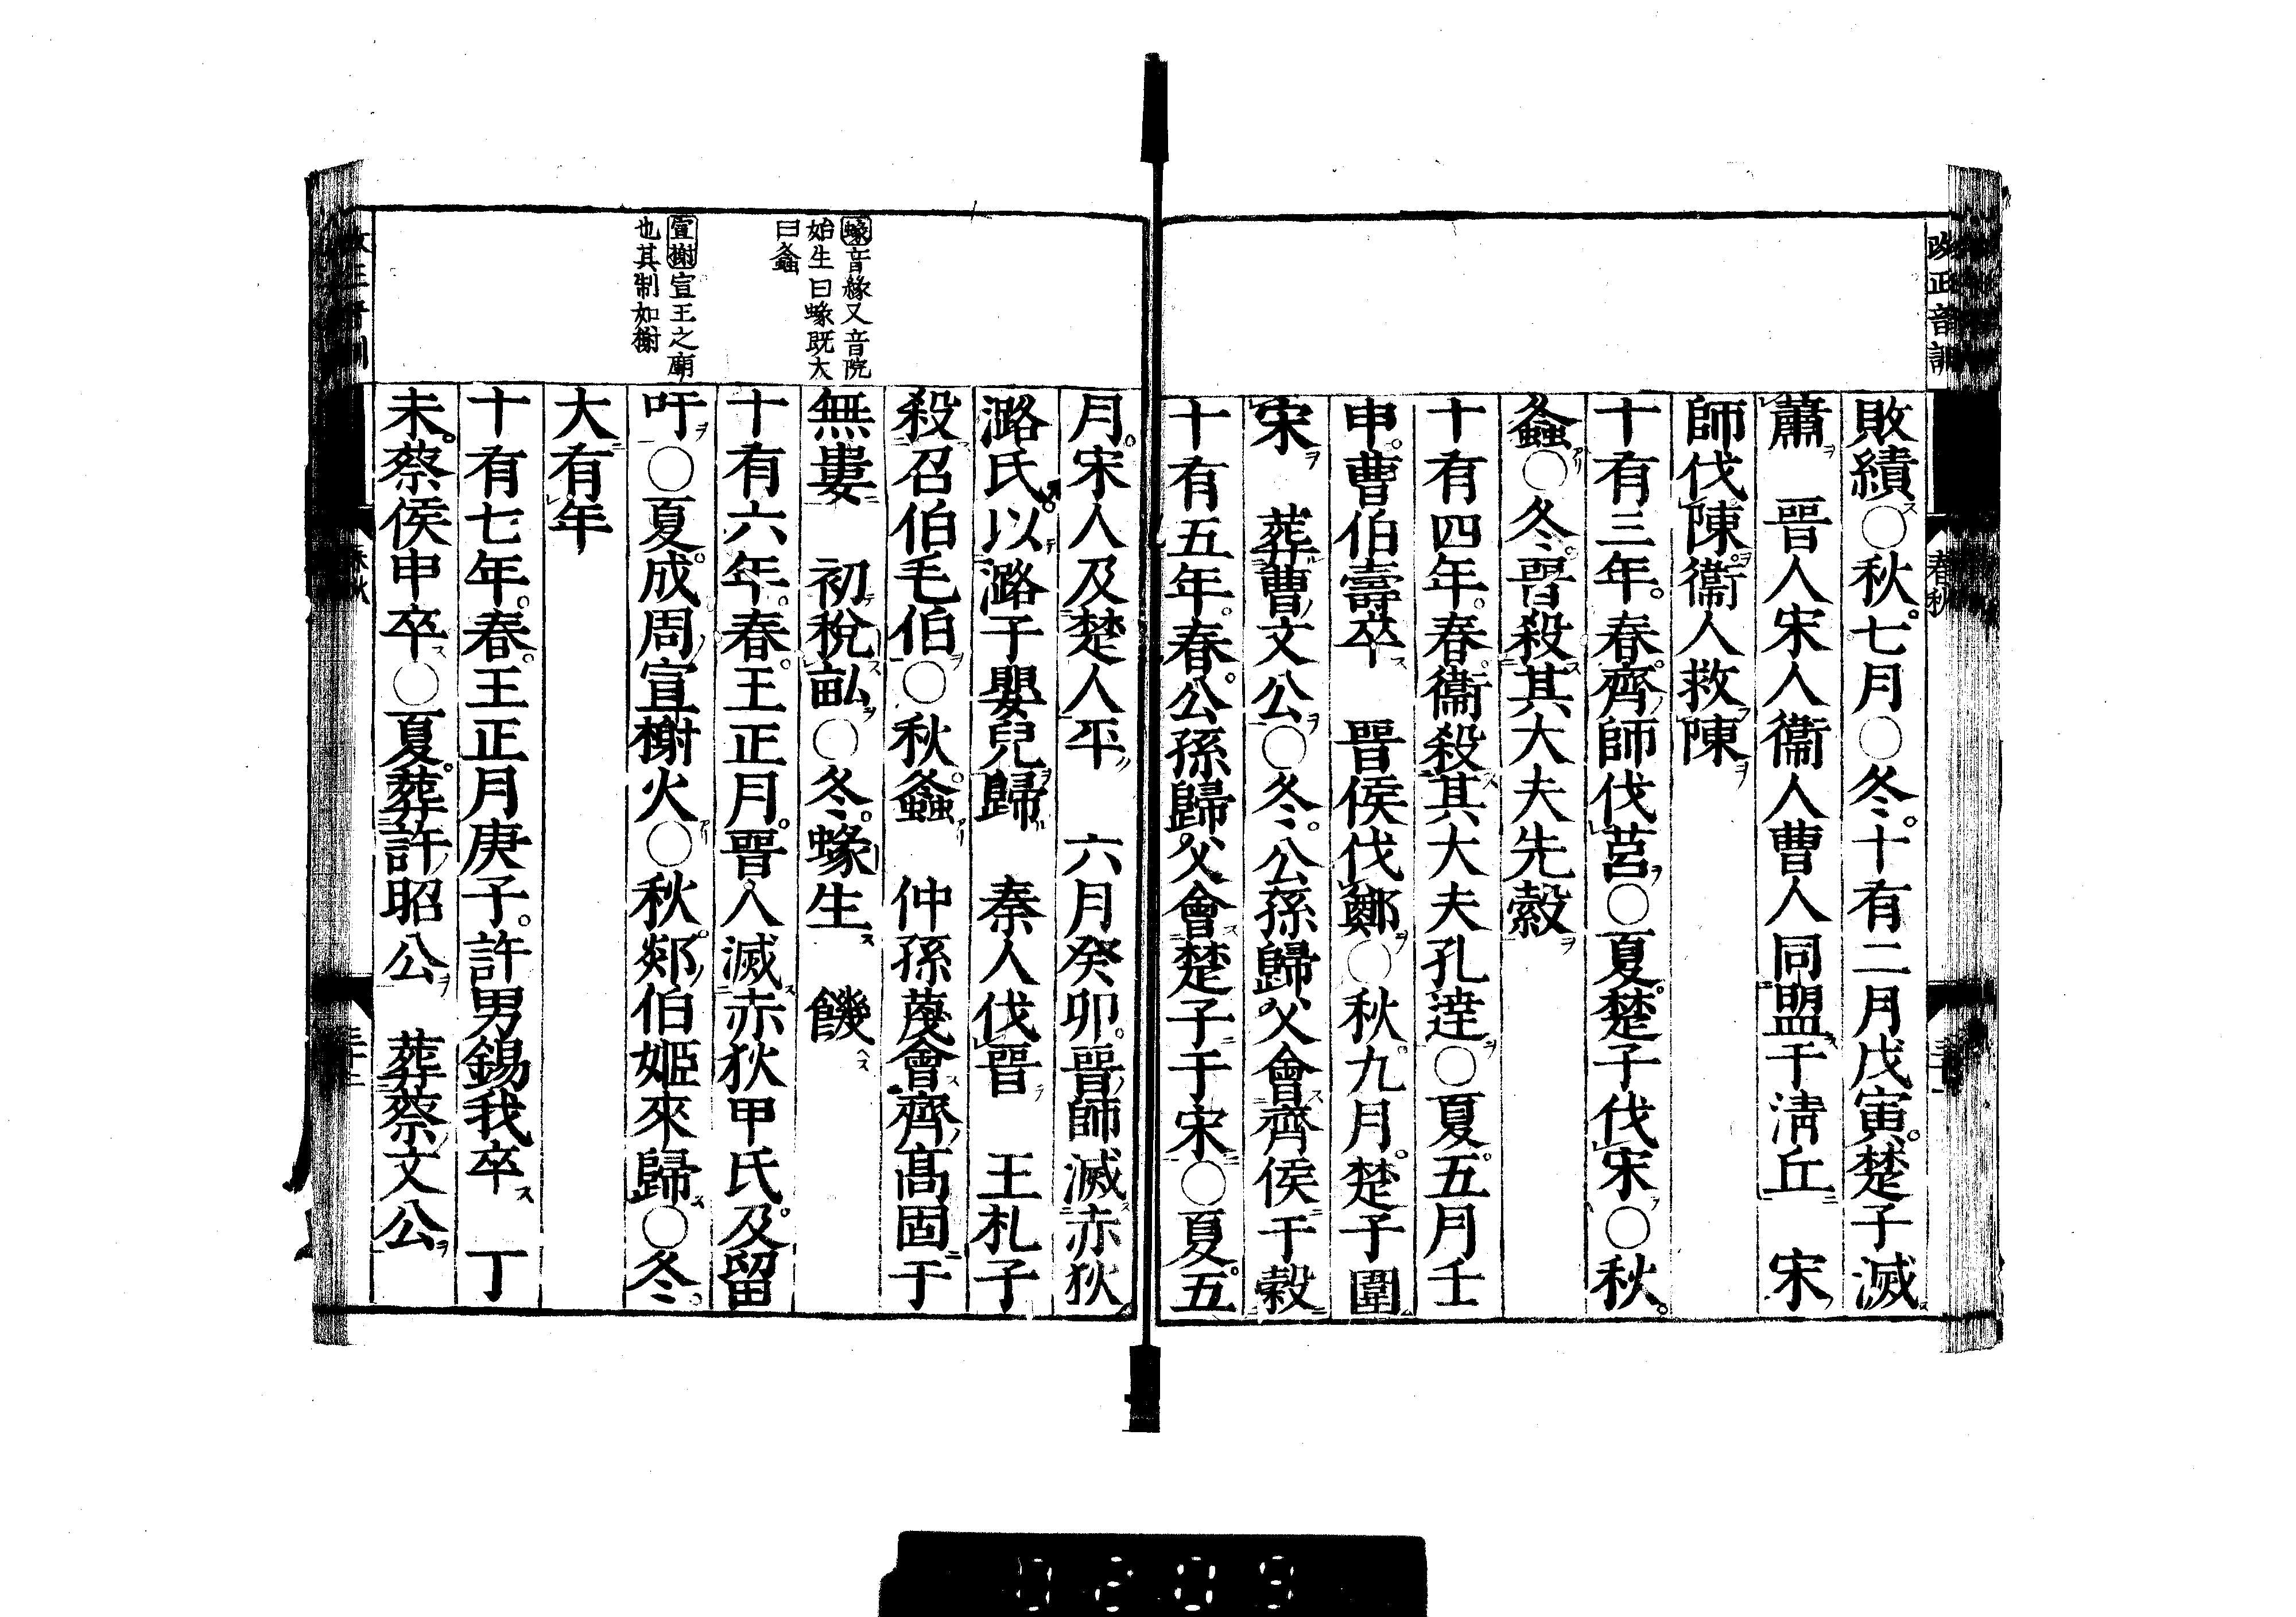 改正音訓
春秋
敗績○秋七月○冬十有二月戊寅楚子滅
蕭　晉人宋人衞人曹人同盟于淸丘　宋
師伐陳衞人救陳
十有三年春齊師伐莒○夏楚子伐宋○秋
螽○冬晉殺其大夫先縠
十有四年春衞殺其大夫孔達○夏五月壬
申曹伯壽卒　晉侯伐鄭○秋九月楚子圍
宋　葬曹文公○冬公孫歸父會齊侯于穀
十有五年春公孫歸父會楚子于宋○夏五
月宋人及楚人平　六月癸卯晉師滅赤狄
潞氏以潞子嬰兒歸　秦人伐晉　王札子
殺召伯毛伯○秋螽　仲孫蔑會齊高固于
無婁　初稅畝○冬蝝生　饑
十有六年春王正月晉人滅赤狄甲氏及留
吁○夏成周宣榭火○秋郯伯姬來歸○冬
大有年
十有七年春王正月庚子許男錫我卒　丁
未蔡侯申卒○夏葬許昭公　葬蔡文公
蝝音緣又音院
始生曰蝝既大
曰螽
宣榭宣王之廟
也其制如榭
春秋
0209